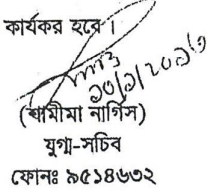 কার্যকর হবে।
(শামীমা নার্গিস)
যুগ্ম-সচিব
ফোনঃ ৯৫১৪৬৩২